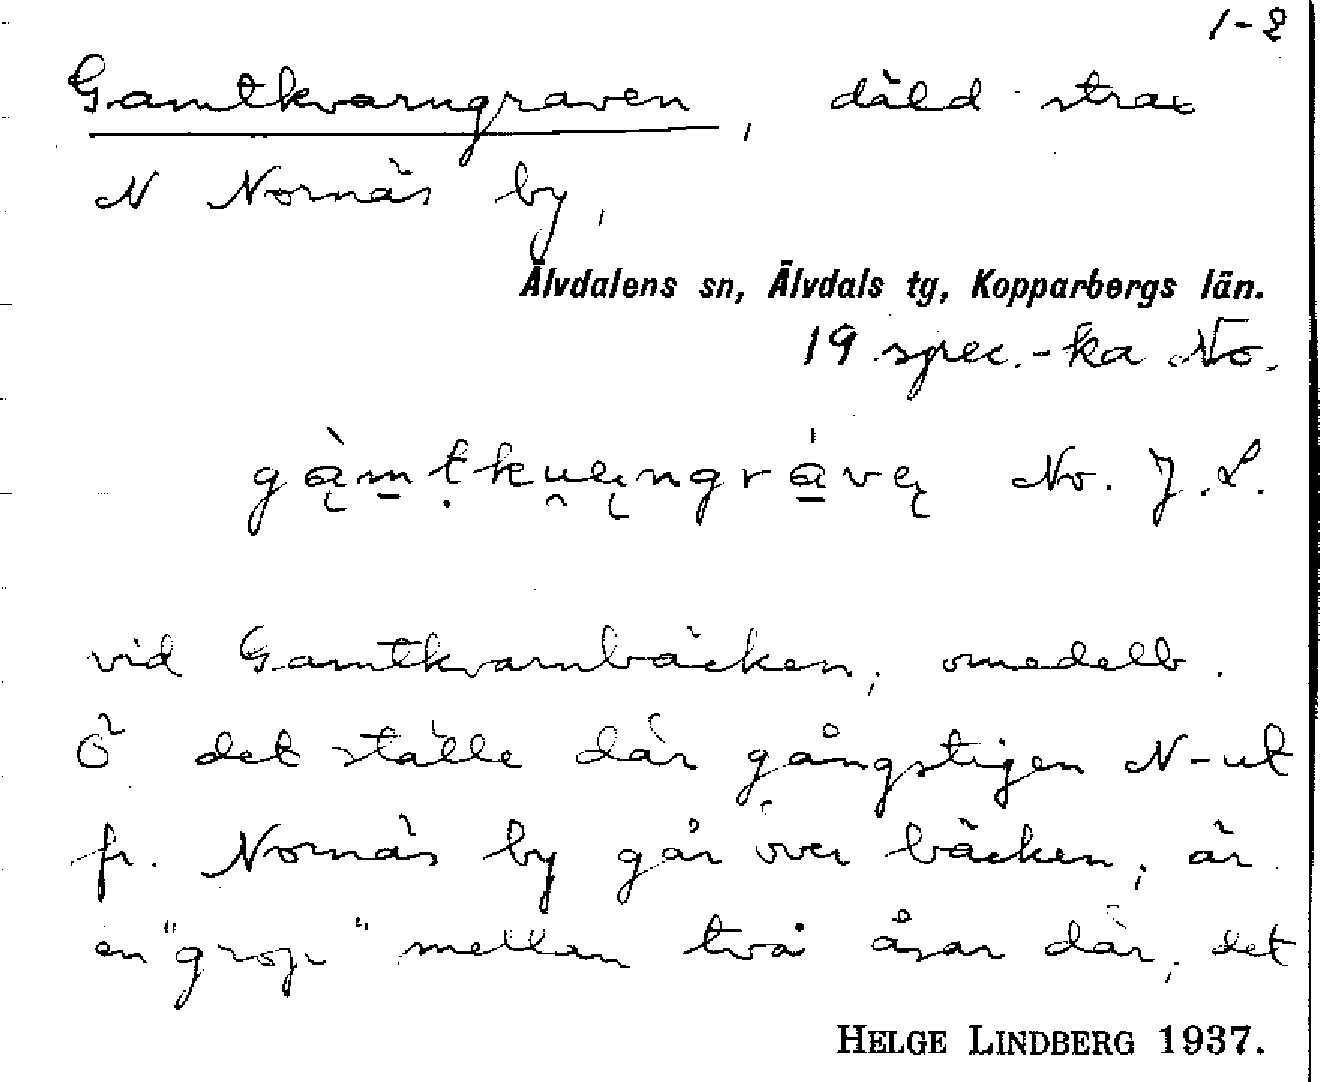 1-2
Gamtkvarngraven, däld strax
N Nornäs by,
Älvdalens sn, Älvdals tg, Kopparbergs län.
19 spec.-ka No.
No. J.L.
vid Gamtkvarnbäcken, omedelb.
Ö det ställe där gångstigen N-ut
fr. Nornäs by går över bäcken; är
en "grop" mellan två åsar där; det
HELGE LINDBERG 1937.